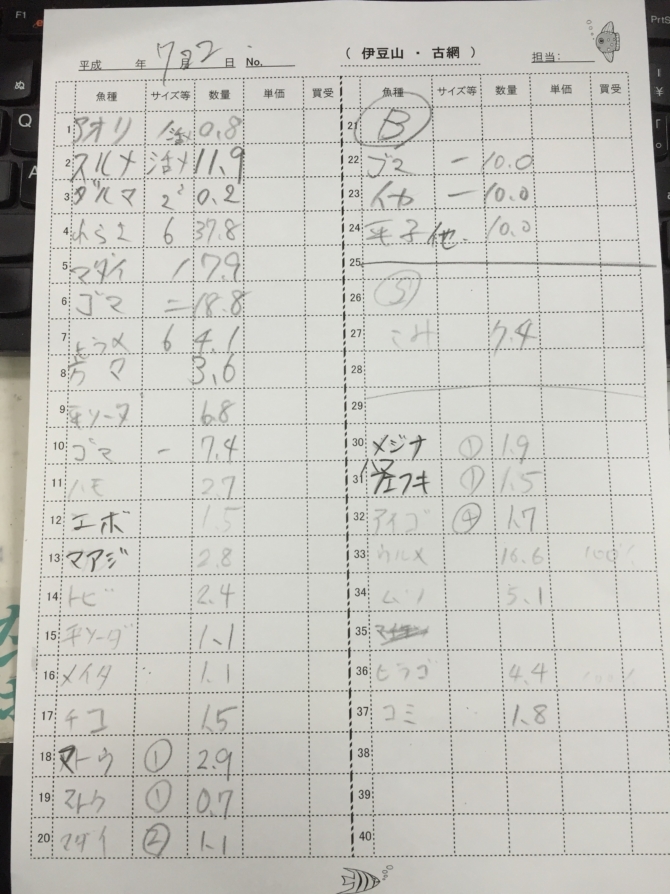 平成 年 7月 22 日 No. ( 伊豆山 ・ 古網 ) 担当:
魚種 サイズ等 数量 単価 買受
1 アオリ 1 活〆 0.8
2 スルメ 活〆 11.9
3 ダルマ 0.2
4 6 37.8
5 マダイ 1 7.9
6 ゴマ 二 18.8
7 ヒラメ 6 4.1
8 マ 3.6
9 平ソーダ 6.8
10 ゴマ 一 7.4
11 ハモ 2.7
12 エボ 1.5
13 マアジ 2.8
14 トビ 2.4
15 平ソーダ 1.1
16 メイタ 1.1
17 チコ 1.5
18 マトウ ① 2.9
19 マトウ ① 0.7
20 マダイ ② 1.1
魚種 サイズ等 数量 単価 買受
21 B
22 ゴマ 一 10.0
23 イナ 一 10.0
24 平子 他. 10.0
25
26
27 コミ 7.4
28
29
30 メジナ ① 1.9
31 ハマフエフキ ① 1.5
32 アイゴ ④ 1.7
33 ウルメ 16.6
34 ムツ 5.1
35
36 ヒラゴ 4.4
37 コミ 1.8
38
39
40